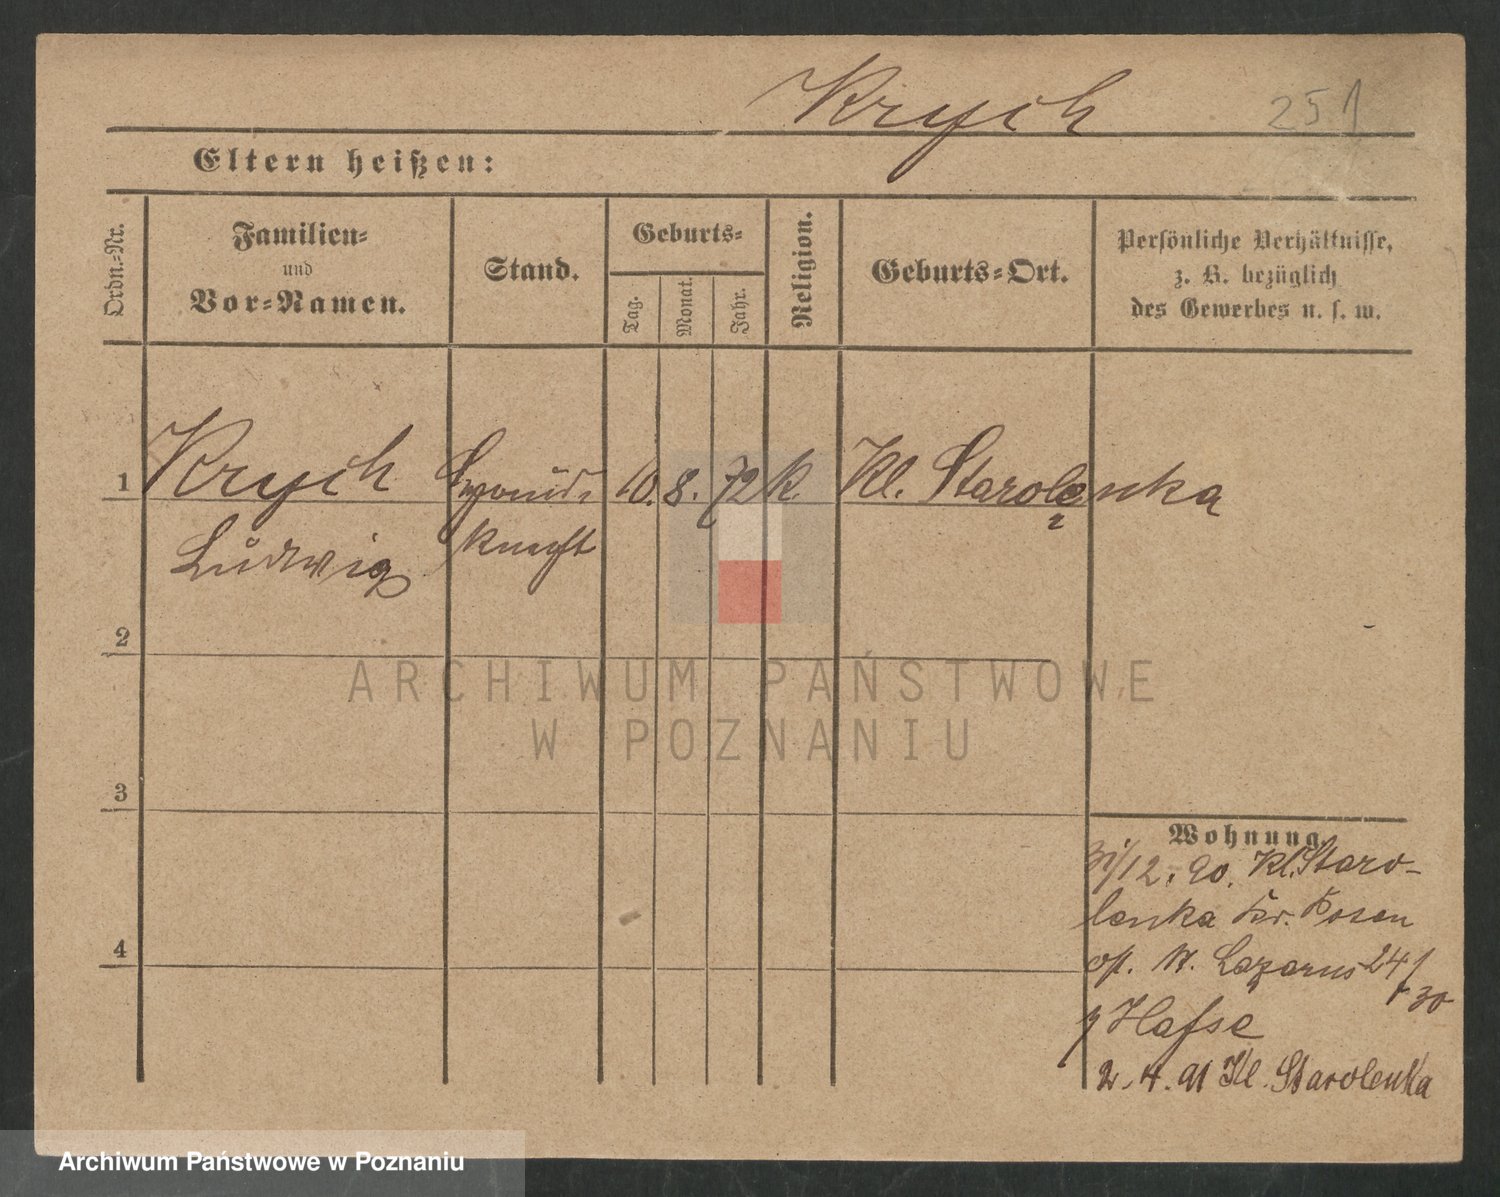 Krych 251
Eltern heißen:
Ordn.-Nr.
Familien-
und
Vor-Namen.
Stand.
Geburts-
Tag.
Monat.
Jahr.
Religion.
Geburts-Ort.
Persönliche Verhältnisse,
z. B. bezüglich
des Gewerbes u. s. w.
1 Krych 10. 8. 72 K. Kl. Starolenka
Ludwig knecht
2
ARCHIWUM PAŃSTWOWE
W POZNANIU
3
Wohnung
31/12. 90. Kl. Staro-
lenka Kr. Posen
St. Lazarus 24/
30
Hasse
2. 4. 91 Kl. Starolenka
4
Archiwum Państwowe w Poznaniu